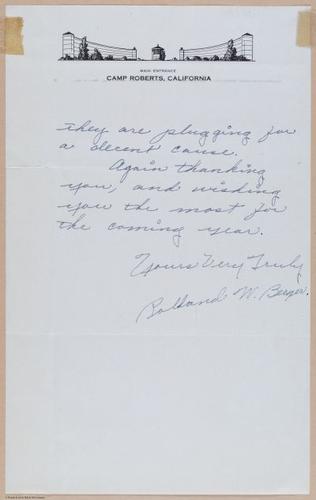 MAIN ENTRANCE
CAMP ROBERTS, CALIFORNIA
they are plugging for
a decent cause.
Again thanking
you, and wishing
you the most for
the coming year.
Yours Very Truly
Rolland W. Berger.